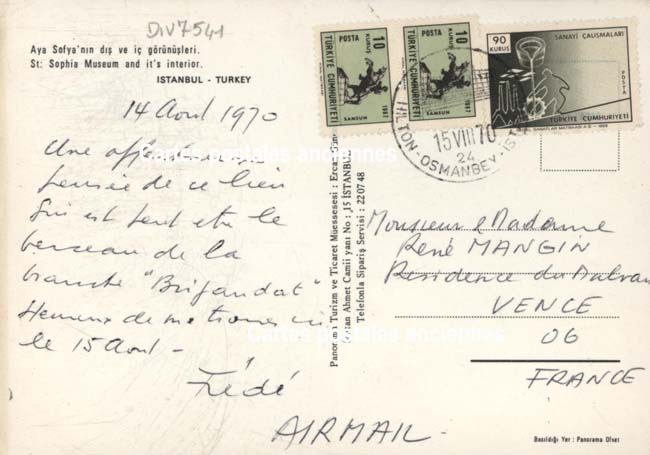 DIV7541
Aya Sofya'nın dış ve iç görünüşleri.
St: Sophia Museum and it's interior.
ISTANBUL - TURKEY
14 Aout 1970
Une
pensée de ce lieu
qui est peut etre le
berceau de la
branche "Brigandat"
Heureux de
le 15 Aout -
Frédé
AIRMAIL
Cartes postales anciennes
Cartes postales anciennes
Panorama Turizm ve Ticaret Müessesesi : Ercan
Sultan Ahmet Camii yanı No : 15 İSTANBUL
Telefonla Sipariş Servisi : 22 07 48
POSTA
10 KURUŞ
TÜRKİYE CUMHURİYETİ
SAMSUN
1967
POSTA
10 KURUŞ
TÜRKİYE CUMHURİYETİ
SAMSUN
1967
90 KURUŞ
SANAYİ ÇALIŞMALARI
POSTA
TÜRKİYE CUMHURİYETİ
HILTON-OSMANBEY-İST
15 VIII 70
24
Monsieur & Madame
René MANGIN
Residence du
VENCE
06
FRANCE
Basıldığı Yer : Panorama Ofset